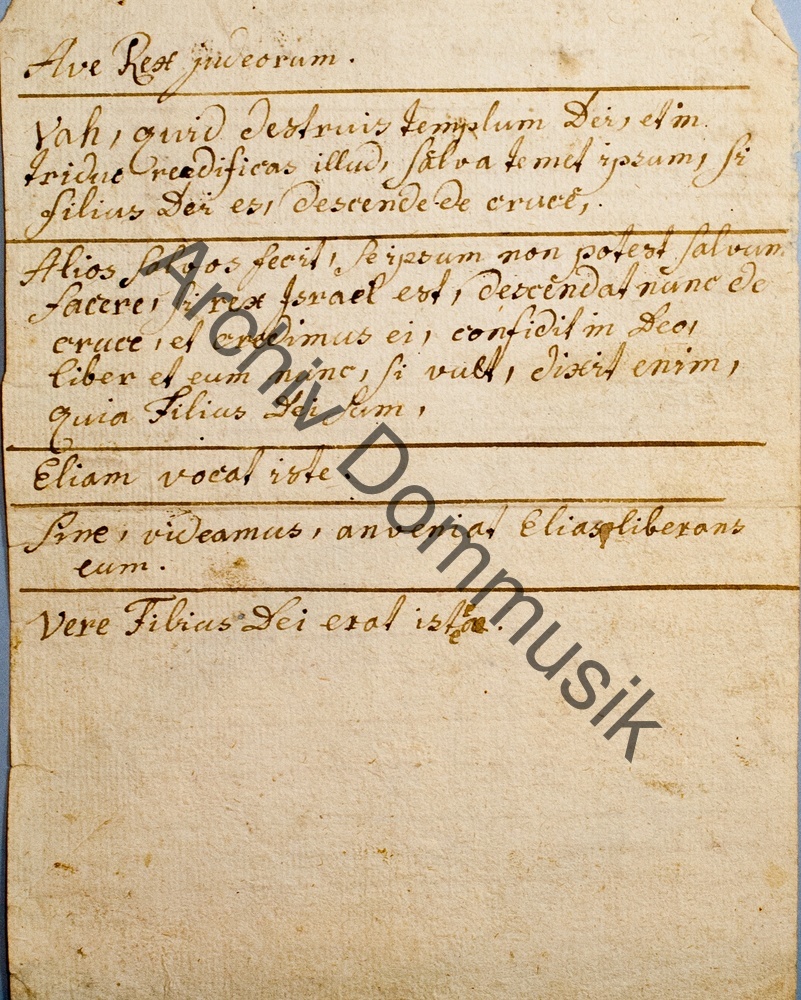 Ave Rex judeorum.
Vah, quid destruis templum Dei, et in
triduo reedificas illud, salva temet ipsum, si
filius Dei es, descende de cruce,.
Alios salvos fecit, seipsum non potest salvum
facere, si rex Israel est, descendat nunc de
cruce, et credimus ei, confidit in Deo,
liberet eum nunc, si vult, dixit enim,
quia Filius Dei sum,
Eliam vocat iste.
Sine, videamus, an veniat Elias liberans
eum.
Vere Filius Dei erat iste.
Archiv Dommusik